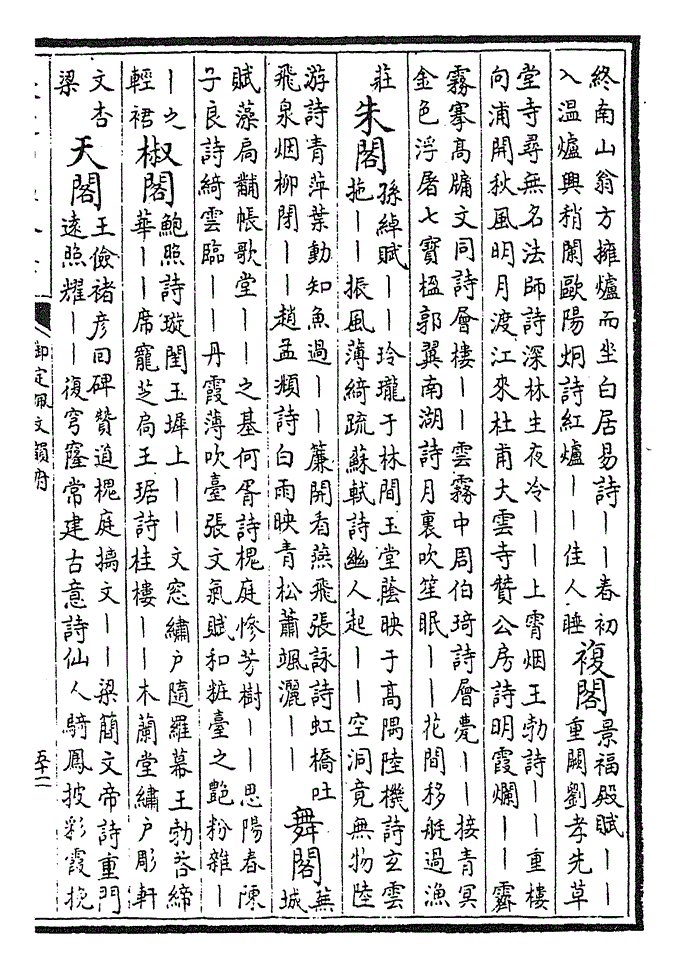 終南山翁方擁爐而坐白居易詩丨丨春初
入温爐興稍闌歐陽炯詩紅爐丨丨佳人睡
複閣
景福殿賦丨丨
重闕劉孝先草
堂寺尋無名法師詩深林生夜冷丨丨上霄烟王勃詩丨丨重樓
向浦開秋風明月渡江來杜甫大雲寺贊公房詩明霞爛丨丨霽
霧搴高牖文同詩層樓丨丨雲霧中周伯琦詩層甍丨丨接青冥
金色浮屠七寶楹郭翼南湖詩月裏吹笙眠丨丨花間移艇過漁
莊
朱閣
孫綽賦丨丨玲瓏于林間玉堂蔭映于高隅陸機詩玄雲
拖丨丨振風薄綺疏蘇軾詩幽人起丨丨空洞竟無物陸
游詩青萍葉動知魚過丨丨簾開看燕飛張詠詩虹橋吐
飛泉烟柳閉丨丨趙孟頫詩白雨映青松蕭颯灑丨丨
舞閣
蕪
城
賦藻扃黼帳歌堂丨丨之基何胥詩槐庭慘芳樹丨丨思陽春陳
子良詩綺雲臨丨丨丹霞薄吹臺張文氣賦和粧臺之艶粉雜丨
丨之
輕裙
椒閣
鮑照詩璇閨玉墀上丨丨文窓繡户隨羅幕王勃啓締
華丨丨席寵芝扃王琚詩桂樓丨丨木蘭堂繡户彫軒
文杏
梁
天閣
王儉禇彦回碑贊道槐庭摛文丨丨梁簡文帝詩重門
遠照耀丨丨復穹窿常建古意詩仙人騎鳳披彩霞挽
御定佩文韻府